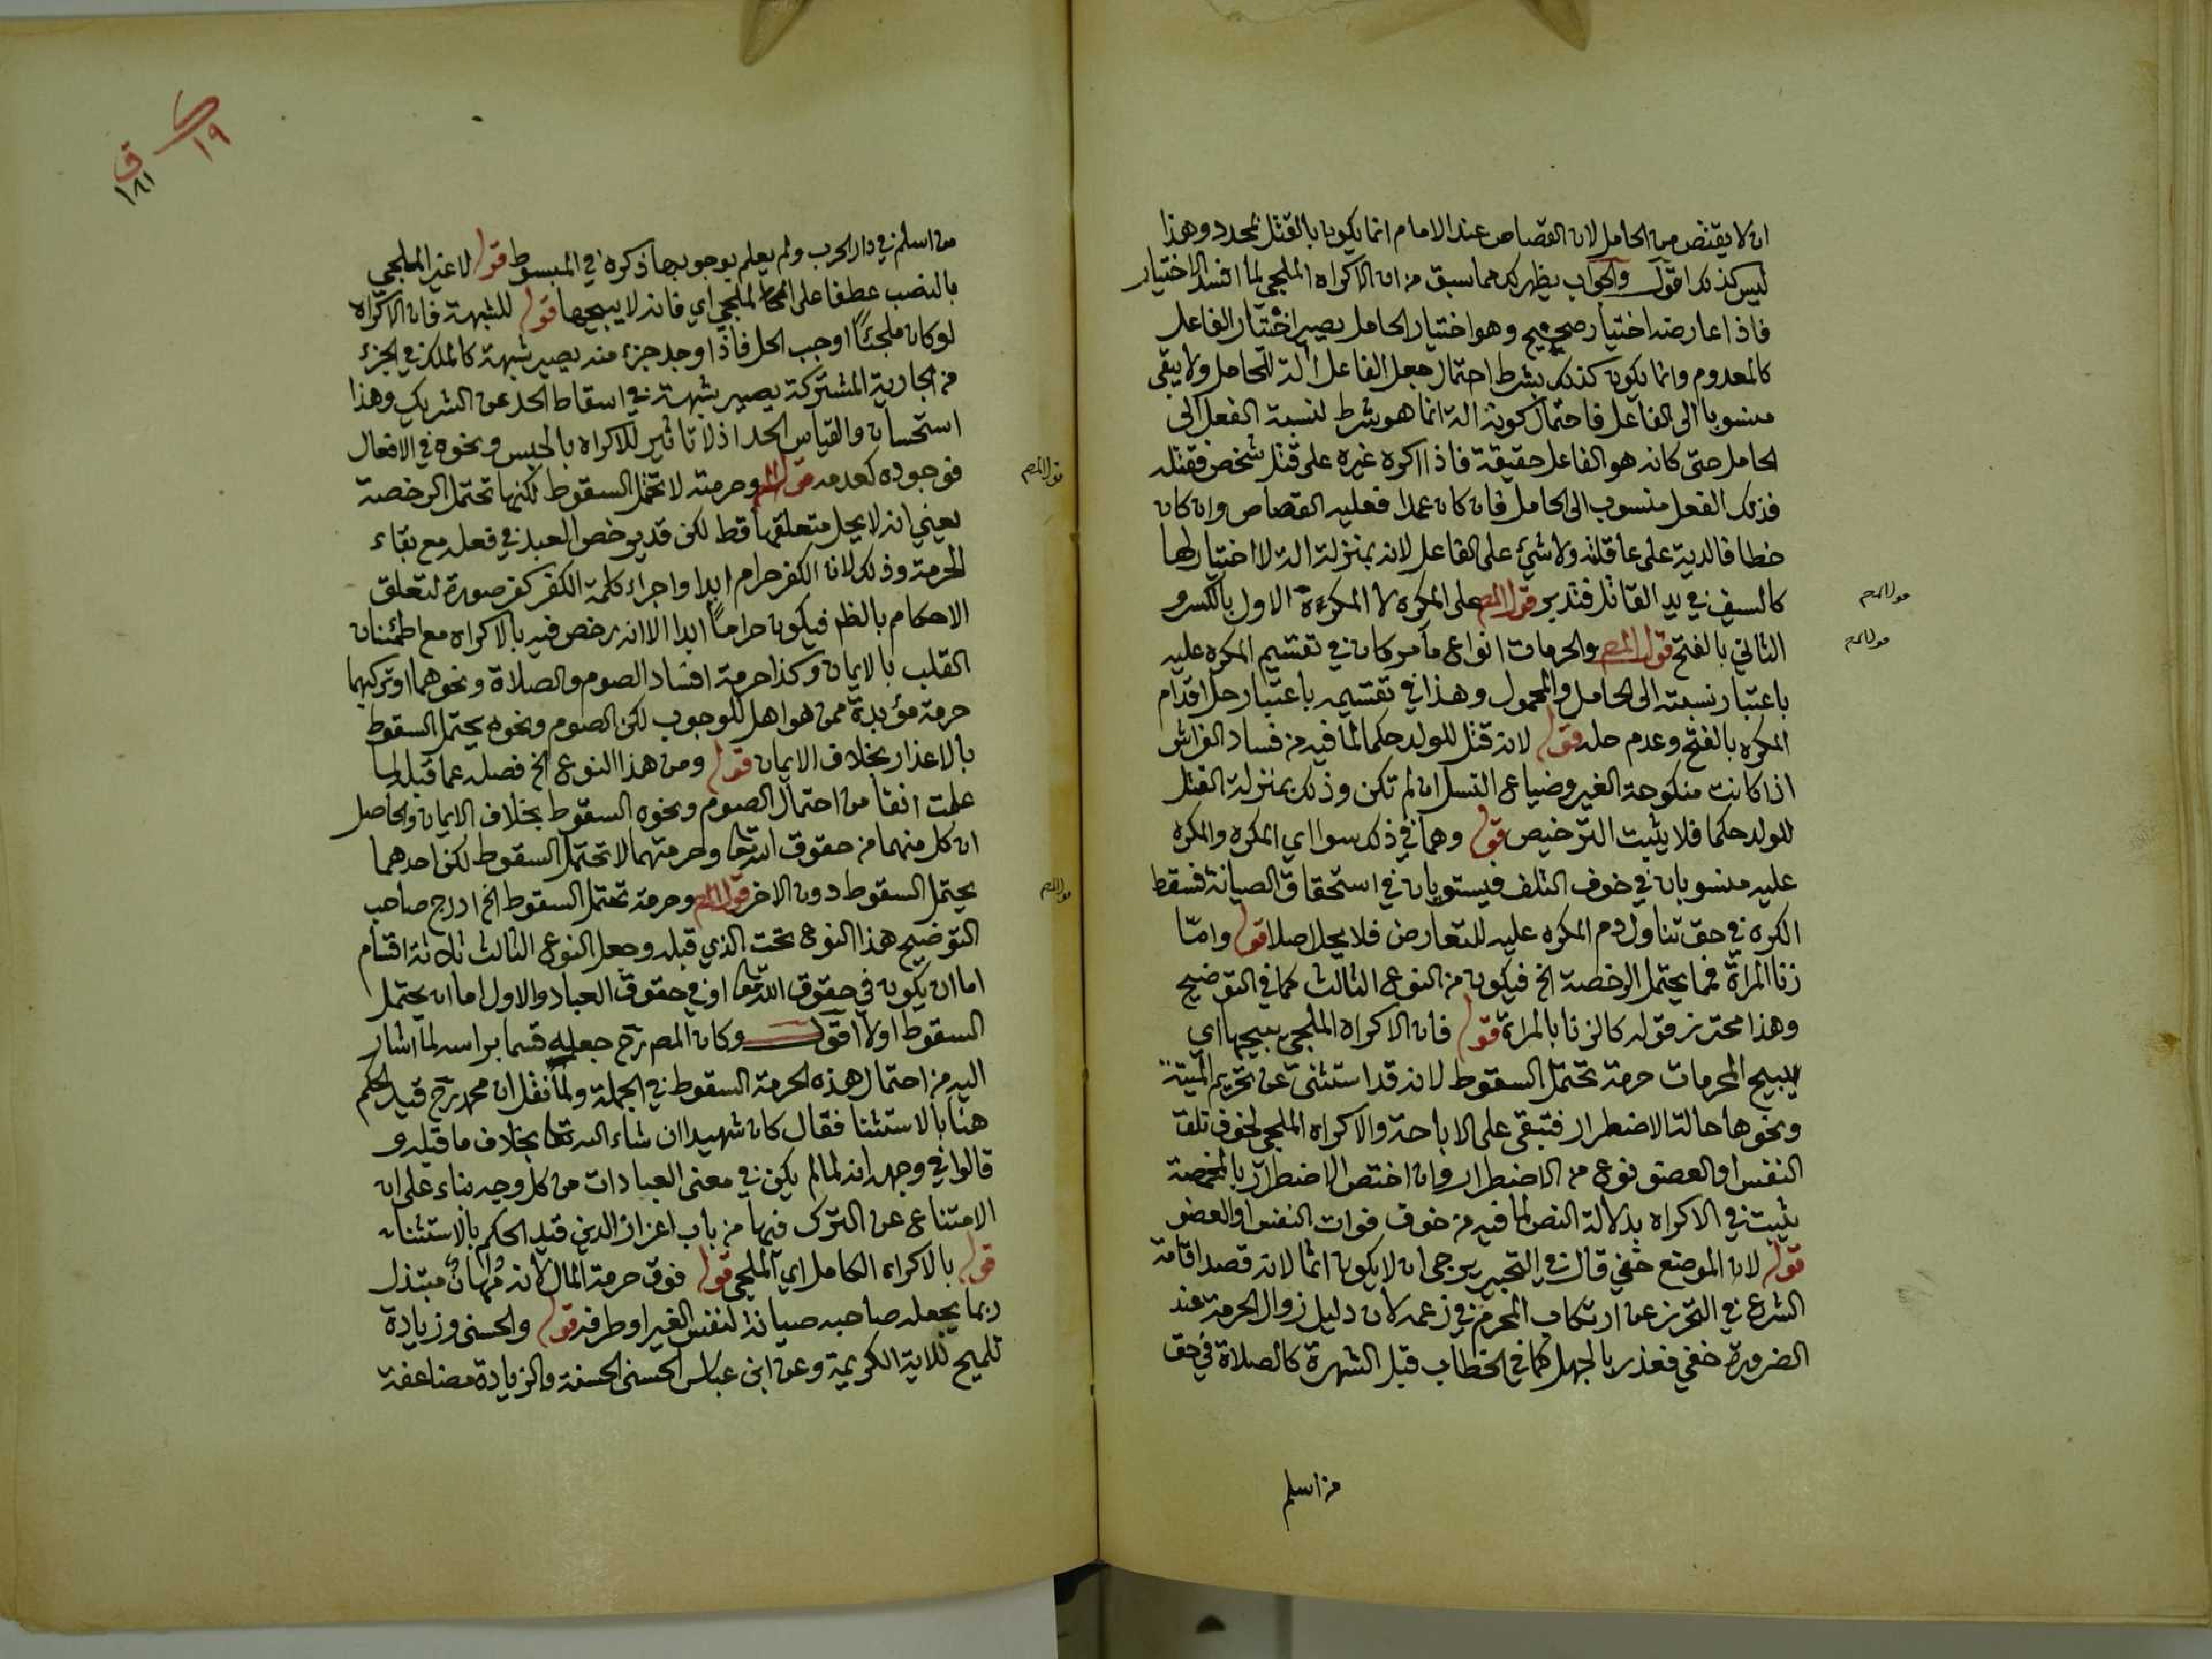 ان لا يقتص من الحامل لان القصاص عند الامام انما يكون بالقتل بمحدد وهذا
ليس كذلك اقول والجواب يظهر لك مما سبق من ان الاكراه الملجي لما افسد الاختيار
فاذا عارضه اختيار صحيح وهو اختيار الحامل يصير اختيار الفاعل
كالمعدوم وانما يكون كذلك بشرط احتمال جعل الفاعل الة للحامل ولا يبقى
منسوبا الى الفاعل فاحتمال كونه الة انما هو شرط لنسبة الفعل الى
الحامل حتى كانه هو الفاعل حقيقة فاذا اكره غيره على قتل شخص فقتله
فذلك الفعل منسوب الى الحامل فان كان عمدا فعليه القصاص وان كان
خطا فالدية على عاقلته ولا شيئ على الفاعل لانه بمنزلة الة لا اختيار لها
كالسيف في يد القاتل فتدبر قول المص على المكرِه لا المكرَه الاول بالكسر و
الثاني بالفتح قول المص والحرمات انواع ما مر كان في تقسيم المكره عليه
باعتبار نسبته الى الحامل والمحمول وهذا في تقسيمه باعتبار حل اقدام
المكره بالفتح وعدم حله قوله لانه قتل للولد حكما لما فيه من فساد الفراش
اذا كانت منكوحة الغير وضياع النسل ان لم تكن وذلك بمنزلة القتل
للولد حكما فلا يثبت الترخيص قوله وهما في ذلك سوا اي المكره والمكره
عليه منسوبان في خوف التلف فيستويان في استحقاق الصيانة فسقط
الكره في حق تناول دم المكره عليه للتعارض فلا يحل اصلا قوله وامّا
زنا المراة فمما يحتمل الرخصة الخ فيكون من النوع الثالث كما في التوضيح
وهذا محترز قوله كالزنا بالمراة قوله فان الاكراه الملجي يبيحها اي
يبيح المحرمات حرمة تحتمل السقوط لانه قد استثنى عن تحريم الميتة
ونحوها حالة الاضطرار فتبقى على الاباحة والاكراه الملجي لخوف تلف
النفس او العضو نوع من الاضطرار وان اختص الاضطرار بالمخمصة
يثبت في الاكراه بدلالة النص لما فيه من خوف فوات النفس او العضو
قوله لان الموضع خفي قال في التحبير يرجى ان لا يكون اثما لانه قصد اقامة
الشرع في التحرز عن ارتكاب المحرم في زعمه لان دليل زوال الحرمة عند
الضرورة خفي فعذر بالجهل كما في الخطاب قبل الشهرة كالصلاة في حق
من اسلم
قول المص
قول المص
١٩
ق
١٨١
من اسلم في دار الحرب ولم يعلم بوجوبها ذكره في المبسوط قوله لا غير الملجي
بالنصب عطفا على الملجي اي فانه لا يبيحها قوله للشبهة فان الاكراه
لو كان ملجئًا اوجب الحل فاذا وجد جزء منه يصير شبهة كالملك في الجزئ
من الجارية المشتركة يصير شبهة في اسقاط الحد عن الشريك وهذا
استحسان والقياس الحد اذ لا تاثير للاكراه بالحبس ونحوه في الافعال
فوجوده كعدمه قول المص وحرمة لا تحتمل السقوط لكنها تحتمل الرخصة
يعني انه لا يحل متعلقها قط لكن قد يرخص العبد في فعله مع بقاء
الحرمة وذلك لان الكفر حرام ابدا واجراء كلمة الكفر كفر صورة لتعلق
الاحكام بالظهر فيكون حرامًا ابدا الا انه رخص فيه بالاكراه مع اطمئنان
القلب بالايمان وكذا حرمة افساد الصوم والصلاة ونحوهما او تركهما
حرمة مؤبدة ممن هو اهل للوجوب لكن الصوم ونحوه يحتمل السقوط
بالاعذار بخلاف الايمان قوله ومن هذا النوع الخ فصله عما قبله لما
علمت انفا من احتمال الصوم ونحوه السقوط بخلاف الايمان والحاصل
ان كل منهما من حقوق الله تعا وحرمتهما لا تحتمل السقوط لكن احدهما
يحتمل السقوط دون الاخر قول المص وحرمة تحتمل السقوط الخ ادرج صاحب
التوضيح هذا النوع تحت الذي قبله وجعل النوع الثالث ثلاثة اقسام
اما ان يكون في حقوق الله تعا او في حقوق العباد والاول اما ان يحتمل
السقوط اولا اقول وكان المص رح جعله قسما براسه لما اشار
اليه من احتمال هذه الحرمة السقوط في الجملة ولما نقل ان محمد رح قيد الحكم
هنا بالاستثنا فقال كان شهيدا ان شاء الله تعا بخلاف ما قبله و
قالوا في وجهه انه لما لم يكن في معنى العبادات من كل وجه بناء على ان
الامتناع عن الترك فيها من باب اعزاز الدين قيد الحكم بالاستثنا
قوله بالاكراه الكامل اي الملجي قوله فوق حرمة المال لانه مُهانٌ مبتذل
ربما يجعله صاحبه صيانة لنفس الغير او طرفه قوله والحسنى وزيادة
تلميح للاية الكريمة وعن ابن عباس الحسنى الحسنة والزيادة مضاعفة
قول المص
قول المص